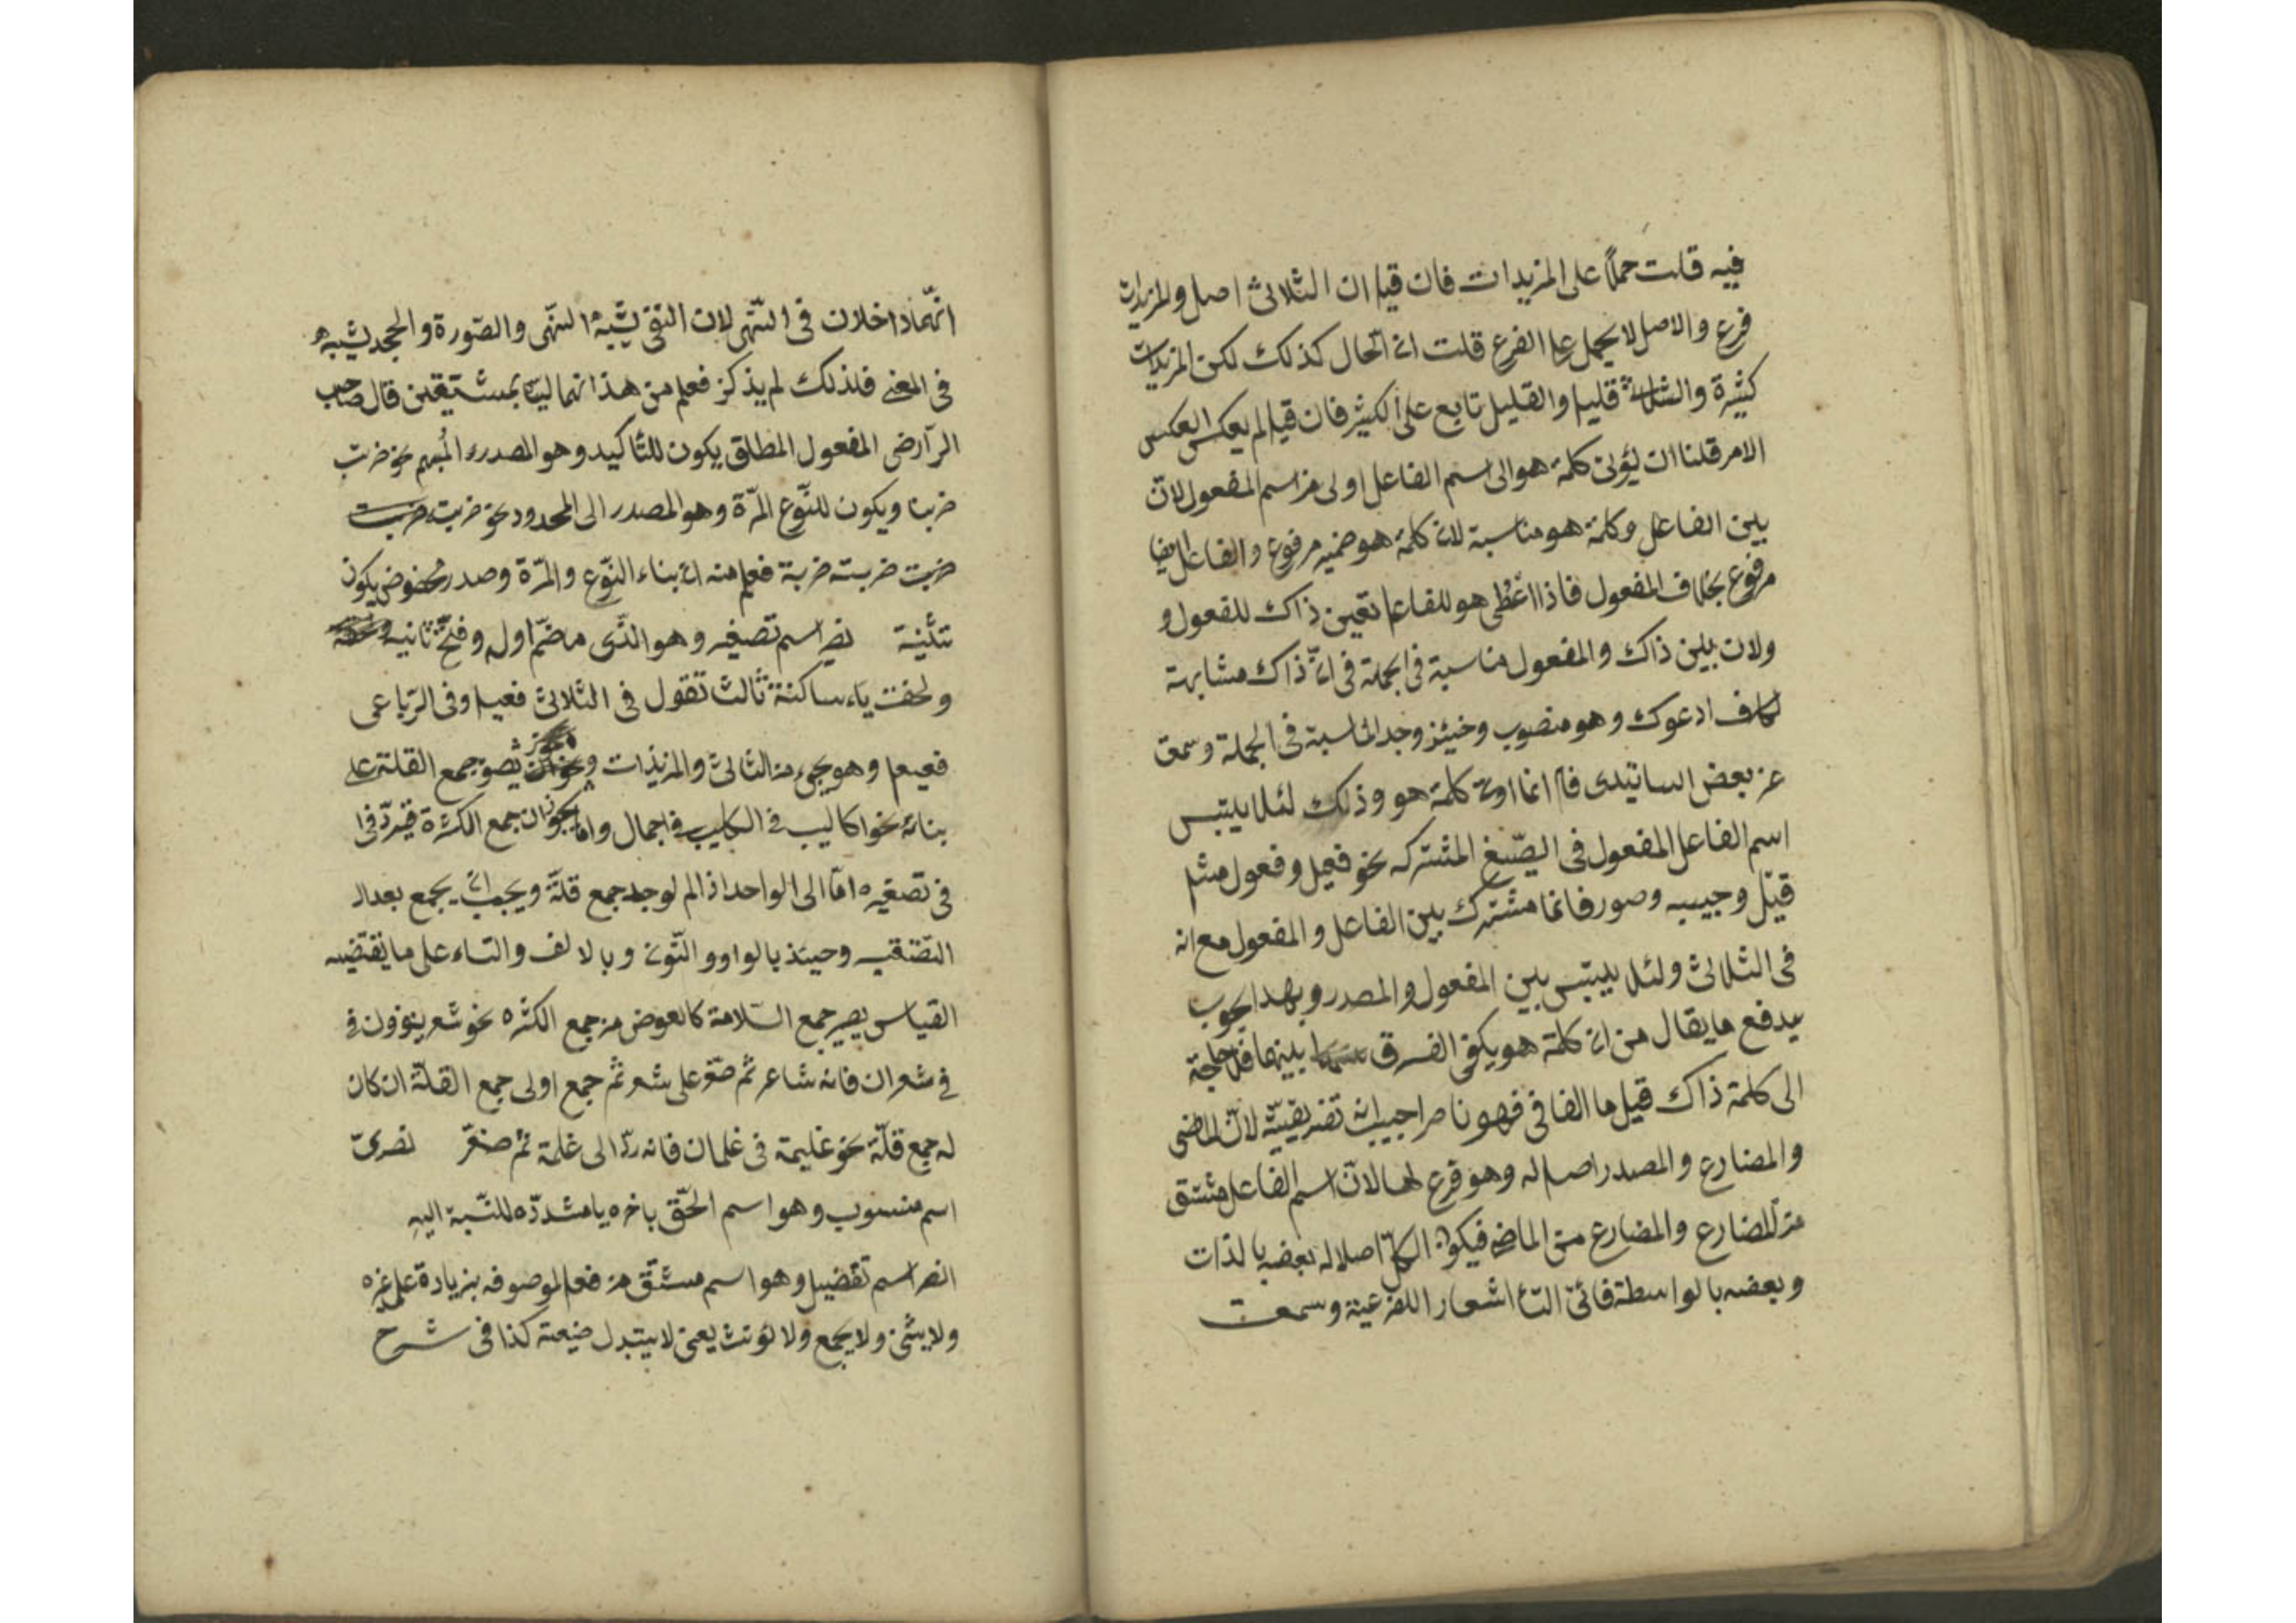 فيه قلت حملاً على المزيدات فان قيل ان الثلاثى اصل والمزيدات
فرع والاصل لا يحمل على الفرع قلت ان الحال كذلك لكن المزيدات
كثيرة والثلاثى قليل والقليل تابع على الكثير فان قيل لم يعكس
الامر قلنا ان كلمة هو الى اسم الفاعل اولى من اسم المفعول لانّ
بين الفاعل وكلمة هو مناسبة لان كلمة هو ضمير مرفوع والفاعل ايضا
مرفوع بخلاف المفعول فاذا اعطى هو للفاعل تعين ذاك للمفعول و
ولان بين ذاك والمفعول مناسبة فى الجملة فى انّ ذاك مشابهة
لكاف ادعوك وهو منصوب وجد المناسبة فى الجملة وسمعت
عن بعض كلمة هو وذلك لئلا يلتبس
اسم الفاعل المفعول فى الصّيغ المشتركه نحو فعيل وفعول مثل
وصور فانما مشترك بين الفاعل والمفعول مع انه
فى الثلاثى ولئلا يلتبس بين المفعول والمصدر وبهذا الجواب
يدفع ما يقال من ان كلمة هو يكفى الفرق بينهما فلا حاجة
الى كلمة ذاك قيل ما الفا فى فهو ناصر اجيب انه تفريقيّة لانّ الماضى
والمضارع والمصدر اصل له وهو فرع لها لانّ اسم الفاعل مشتق
من المضارع والمضارع من الماضى فيكون الكلّ اصلا له بعضه بالذات
وبعضه بالواسطة اشعار اللفرعية وسمعت
انّهما داخلان فى النّهى لان النفى يشبه النّهى والصّورة والجحد يشبه
فى المعنى فلذلك لم يذكر فعلم من هذا انهما ليسا بمستقلين قال صاحب
المفعول المطلق يكون للتأكيد وهو المصدر المُبهم نحو ضربت
ضربا ويكون للنّوع المرّة وهو المصدر الى المحدود نحو ضربت ضربت
ضربت ضربته ضربة فعلم منه انّ بناء النّوع والمرّة وصدر مخصوص يكون
تثنية نصر اسم تصغير وهو الذّى ما ضمّ اول وفتح ثانيه
ولحقت ياء ساكنة ثالث تقول فى الثلاثى فعيل وفى الرّباعى
فعيعل وهو يجىء من الثلاثى والمزيدات جمع القلة على
بنائه نحو اكاليب فى اجمال واما جمع الكثرة
فى تصغيره امّا الى الواحد اذا لم لوجد جمع قلّة ويجب ان يجمع بعد ال
وحينئذ بالواو والنّون وبالالف والتاء على ما يقتضيه
القياس يصير جمع السّلامة كالعوض من جمع الكثره نحو شعرينوون فى
فى شعران فانه شاعر ثم صغر على شعر ثم جمع اولى جمع القلّة ان كان
له جمع قلّة نحو غليمة فى غلمان فانه ردّ الى غلمة ثم صغر نصرىّ
اسم منسوب وهو اسم الحّق باخره يا مشدّده للنّسبة اليه
انصر اسم تفضيل وهو اسم مشتّق من فعل لموصوفه بزيادة على غيره
ولا يثنى ولا يجمع ولا لؤنث يعنى لا يتبدل ضيعته كذا فى شرح